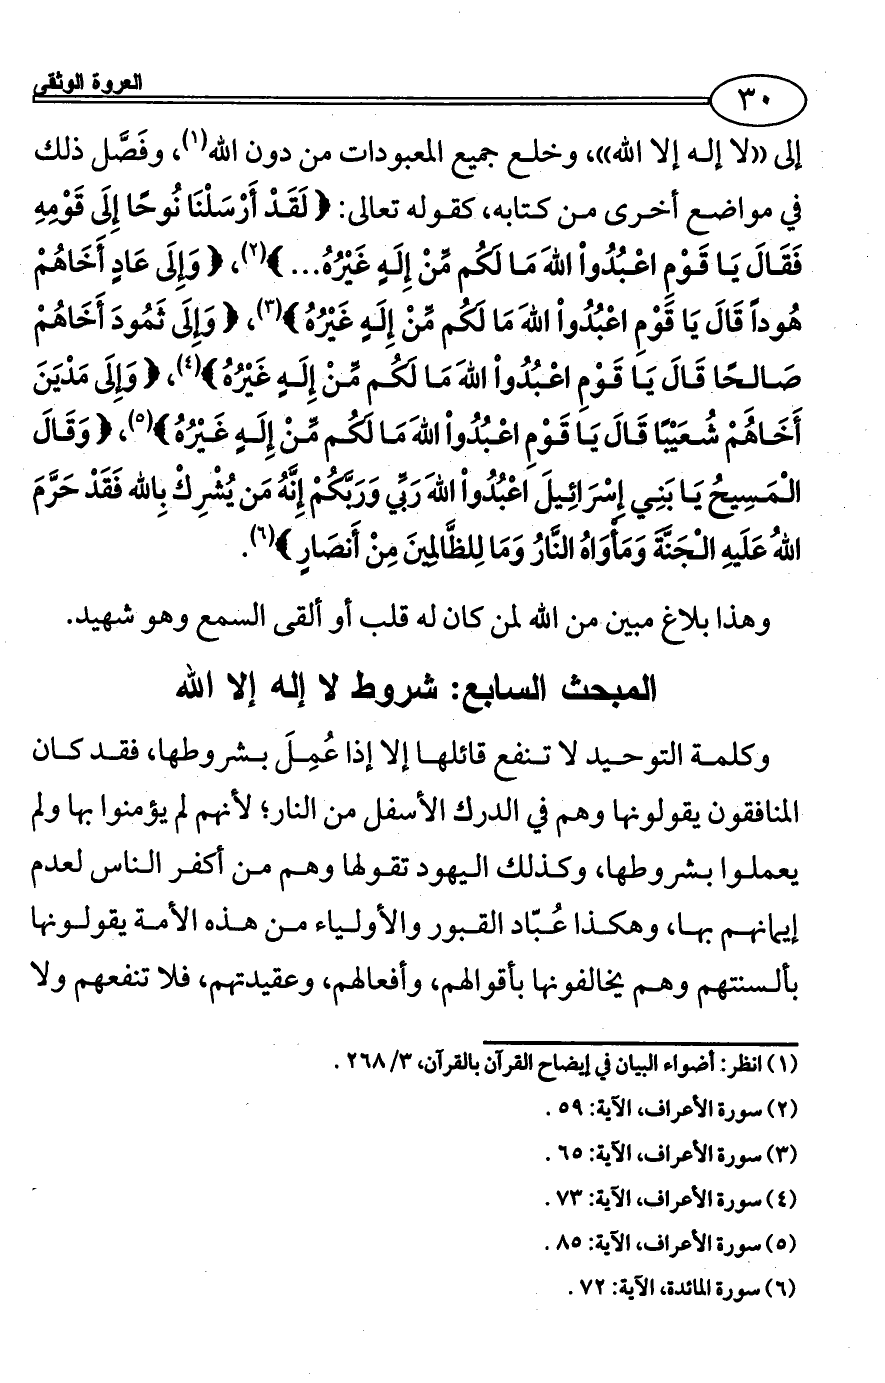 العروة الوثقى
٣٠
إلى «لا إله إلا الله»، وخلع جميع المعبودات من دون الله(١)، وفَصَّل ذلك
في مواضع أخرى من كتابه، كقوله تعالى: ﴿لَقَدْ أَرْسَلْنَا نُوحًا إِلَى قَوْمِهِ
فَقَالَ يَا قَوْمِ اعْبُدُواْ اللهَ مَا لَكُم مِّنْ إِلَـهٍ غَيْرُهُ... ﴾(٢)، ﴿وَإِلَى عَادٍ أَخَاهُمْ
هُوداً قَالَ يَا قَوْمِ اعْبُدُواْ اللهَ مَا لَكُم مِّنْ إِلَـهٍ غَيْرُهُ﴾(٣)، ﴿وَإِلَى ثَمُودَ أَخَاهُمْ
صَالِحًا قَالَ يَا قَوْمِ اعْبُدُواْ اللهَ مَا لَكُم مِّنْ إِلَـهٍ غَيْرُهُ﴾(٤)، ﴿وَإِلَى مَدْيَنَ
أَخَاهُمْ شُعَيْبًا قَالَ يَا قَوْمِ اعْبُدُواْ اللهَ مَا لَكُم مِّنْ إِلَـهٍ غَيْرُهُ﴾(٥)، ﴿وَقَالَ
الْمَسِيحُ يَا بَنِي إِسْرَائِيلَ اعْبُدُواْ اللهَ رَبِّي وَرَبَّكُمْ إِنَّهُ مَن يُشْرِكْ بِالله فَقَدْ حَرَّمَ
اللهُ عَلَيهِ الْجَنَّةَ وَمَأْوَاهُ النَّارُ وَمَا لِلظَّالِمِينَ مِنْ أَنصَارٍ﴾(٦).
وهذا بلاغ مبين من الله لمن كان له قلب أو ألقى السمع وهو شهيد.
المبحث السابع: شروط لا إله إلا الله
وكلمة التوحيد لا تنفع قائلها إلا إذا عُمِلَ بشروطها، فقد كان
المنافقون يقولونها وهم في الدرك الأسفل من النار؛ لأنهم لم يؤمنوا بها ولم
يعملوا بشروطها، وكذلك اليهود تقولها وهم من أكفر الناس لعدم
إيمانهم بها، وهكذا عُبّاد القبور والأولياء من هذه الأمة يقولونها
بألسنتهم وهم يخالفونها بأقوالهم، وأفعالهم، وعقيدتهم، فلا تنفعهم ولا
(١) انظر: أضواء البيان في إيضاح القرآن بالقرآن، ٣/ ٢٦٨ .
(٢) سورة الأعراف، الآية: ٥٩ .
(٣) سورة الأعراف، الآية: ٦٥ .
(٤) سورة الأعراف، الآية: ٧٣ .
(٥) سورة الأعراف، الآية: ٨٥ .
(٦) سورة المائدة، الآية: ٧٢ .